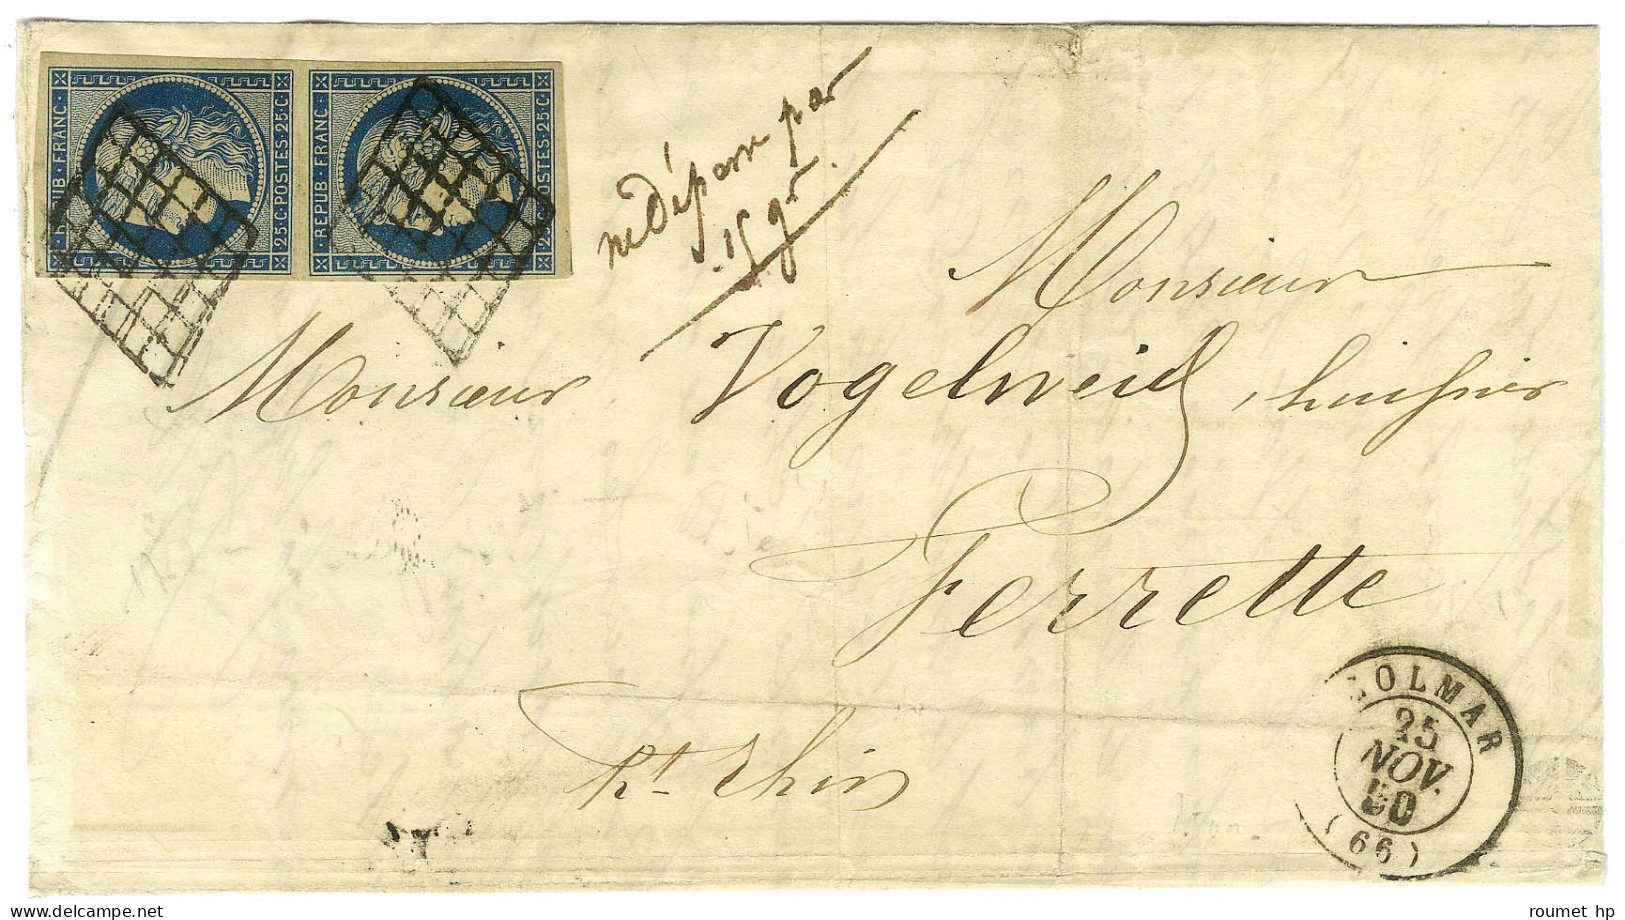 REPUB·FRANC·
25·C·POSTES·25·C·
REPUB·FRANC·
25·C·POSTES·25·C·
ne dépasse pas
15 gr
Monsieur
Monsieur Vogelweid, huissier
Ferrette
ht. Rhin
COLMAR
25
NOV.
50
(66)
roumet hp